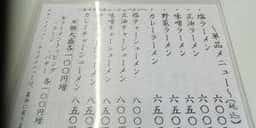 ～単品メニュー～(税込)
塩ラーメン 六〇〇
正油ラーメン 六〇〇
味噌ラーメン 六五〇
野菜ラーメン
カレーラーメン
塩チャーシューメン 八〇〇
正油チャーシューメン 八〇〇
味噌チャーシューメン 八五〇
カレーチャーシューメン 八五〇
※麺大盛各一〇〇円増
各一〇〇円増